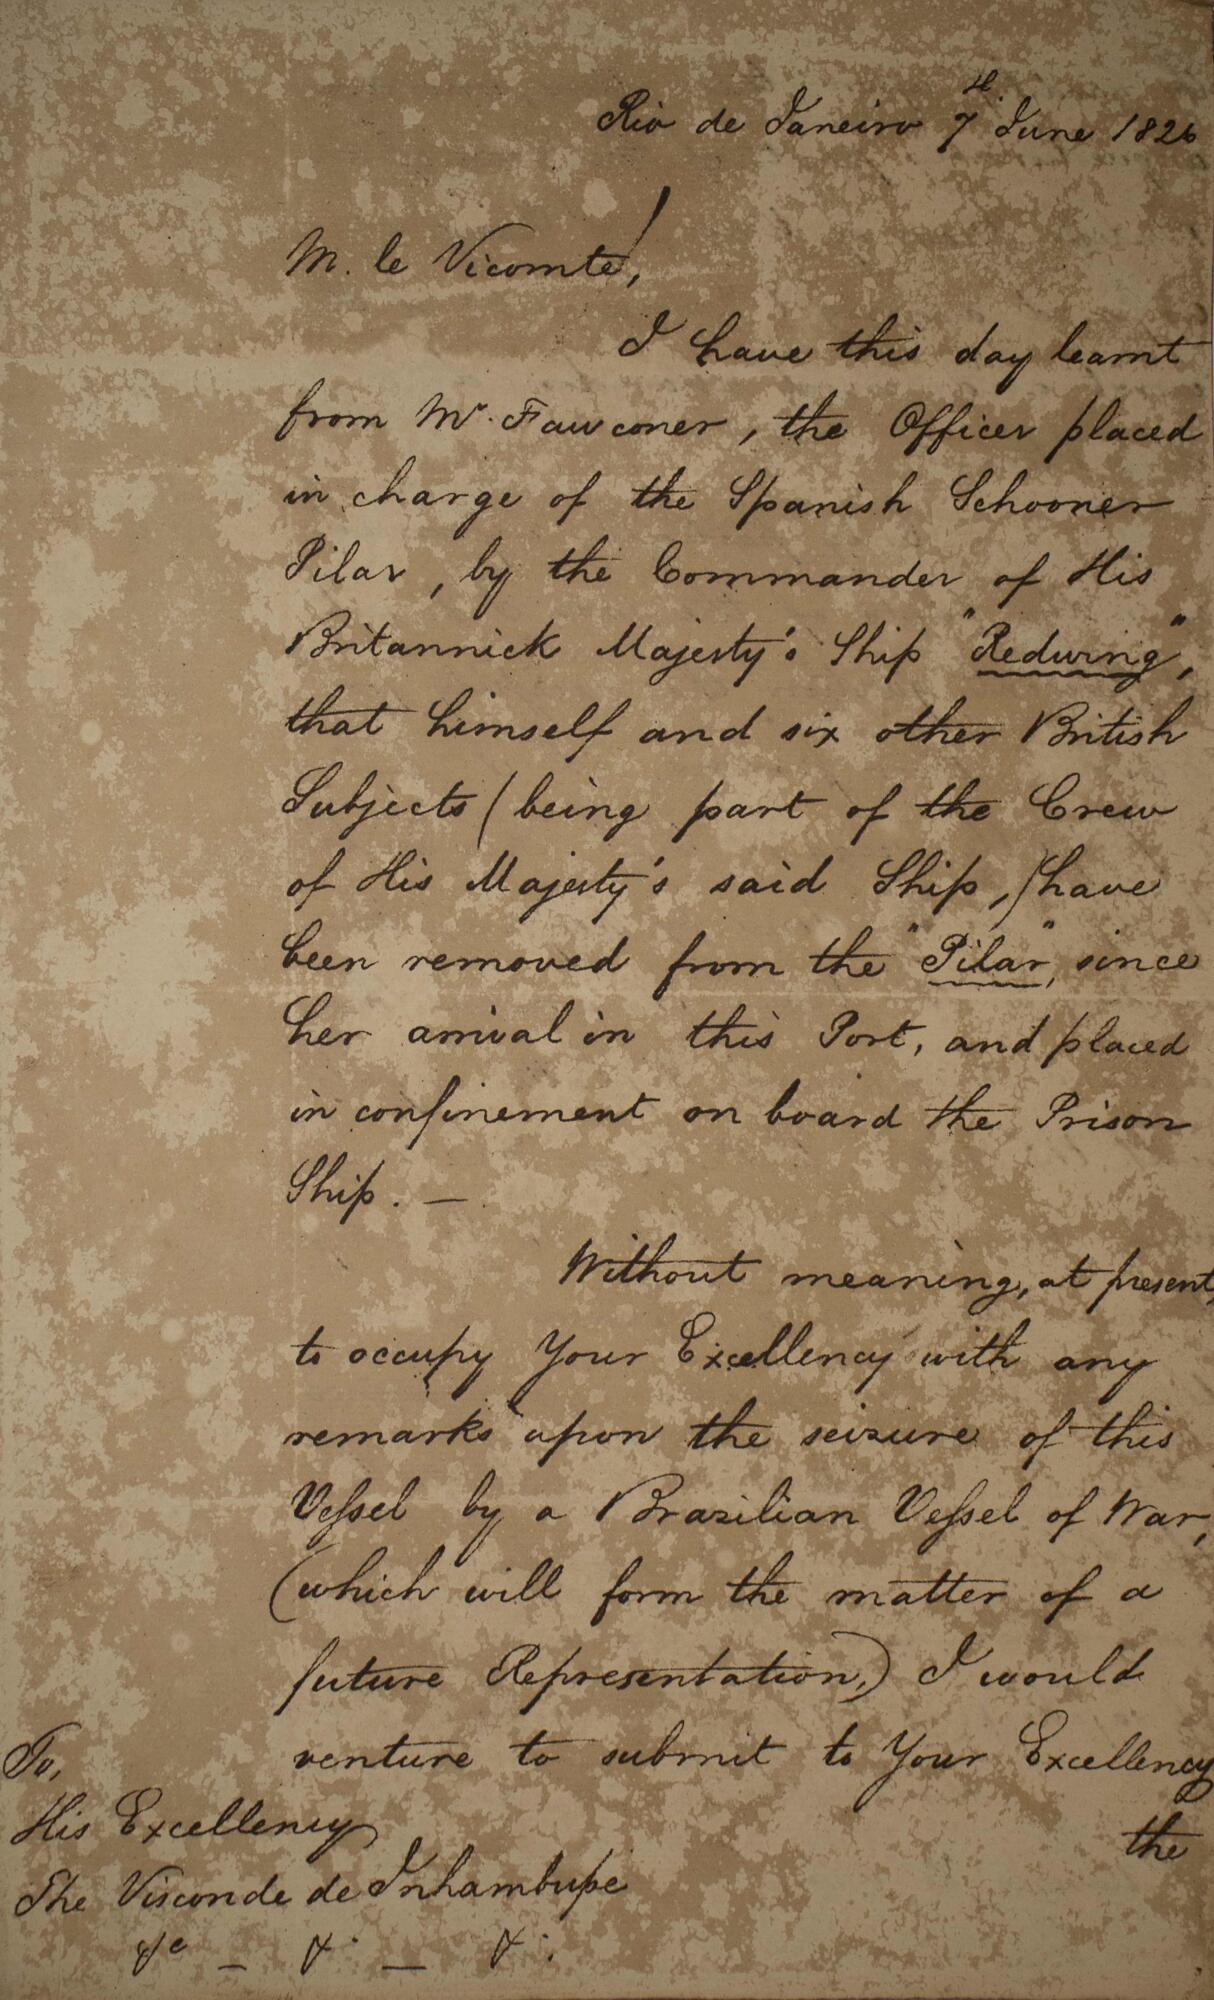 Rio de Janeiro 7th June 1826
M. le Vicomte!,
I have this day learnt
from Mr. Fawconer, the Officer placed
in charge of the Spanish Schooner
Pilar, by the Commander of His
Britannick Majesty's Ship "Redwing",
that himself and six other British
Subjects (being part of the Crew
of His Majesty's said Ship,) have
been removed from the "Pilar", since
her arrival in this Port, and placed
in confinement on board the Prison
Ship. —
Without meaning, at present,
to occupy Your Excellency with any
remarks upon the seizure of this
Vessel by a Brazilian Vessel of War,
(which will form the matter of a
future Representation,) I would
venture to submit to Your Excellency
the
To,
His Excellency
The Visconde de Inhambupe
&c — &. — &. :